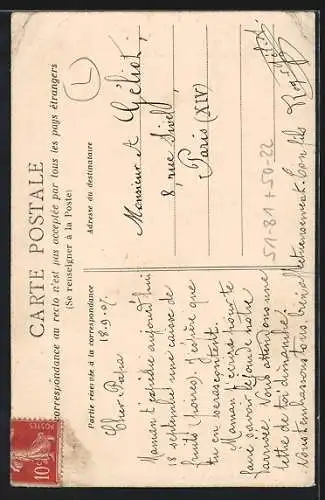 CARTE POSTALE
La correspondance au recto n'est pas acceptée par tous les pays étrangers
(Se renseigner à la Poste)
Partie réservée à la correspondance
Adresse du destinataire
L
18.9.07
Cher Papa
Maman t'expédie aujourd'hui
18 septembre une caisse de
fruits (poires) J'espère que
tu en seras content.
Maman t'écrira pour te
faire savoir le jour de notre
arrivée. Nous attendons une
lettre de toi dimanche.
Nous t'embrassons tous bien affectueusement. Ton fils
Monsieur A Géliot,
8, rue Sivel,
Paris (XIV)
51-81+50-22
POSTES
10c